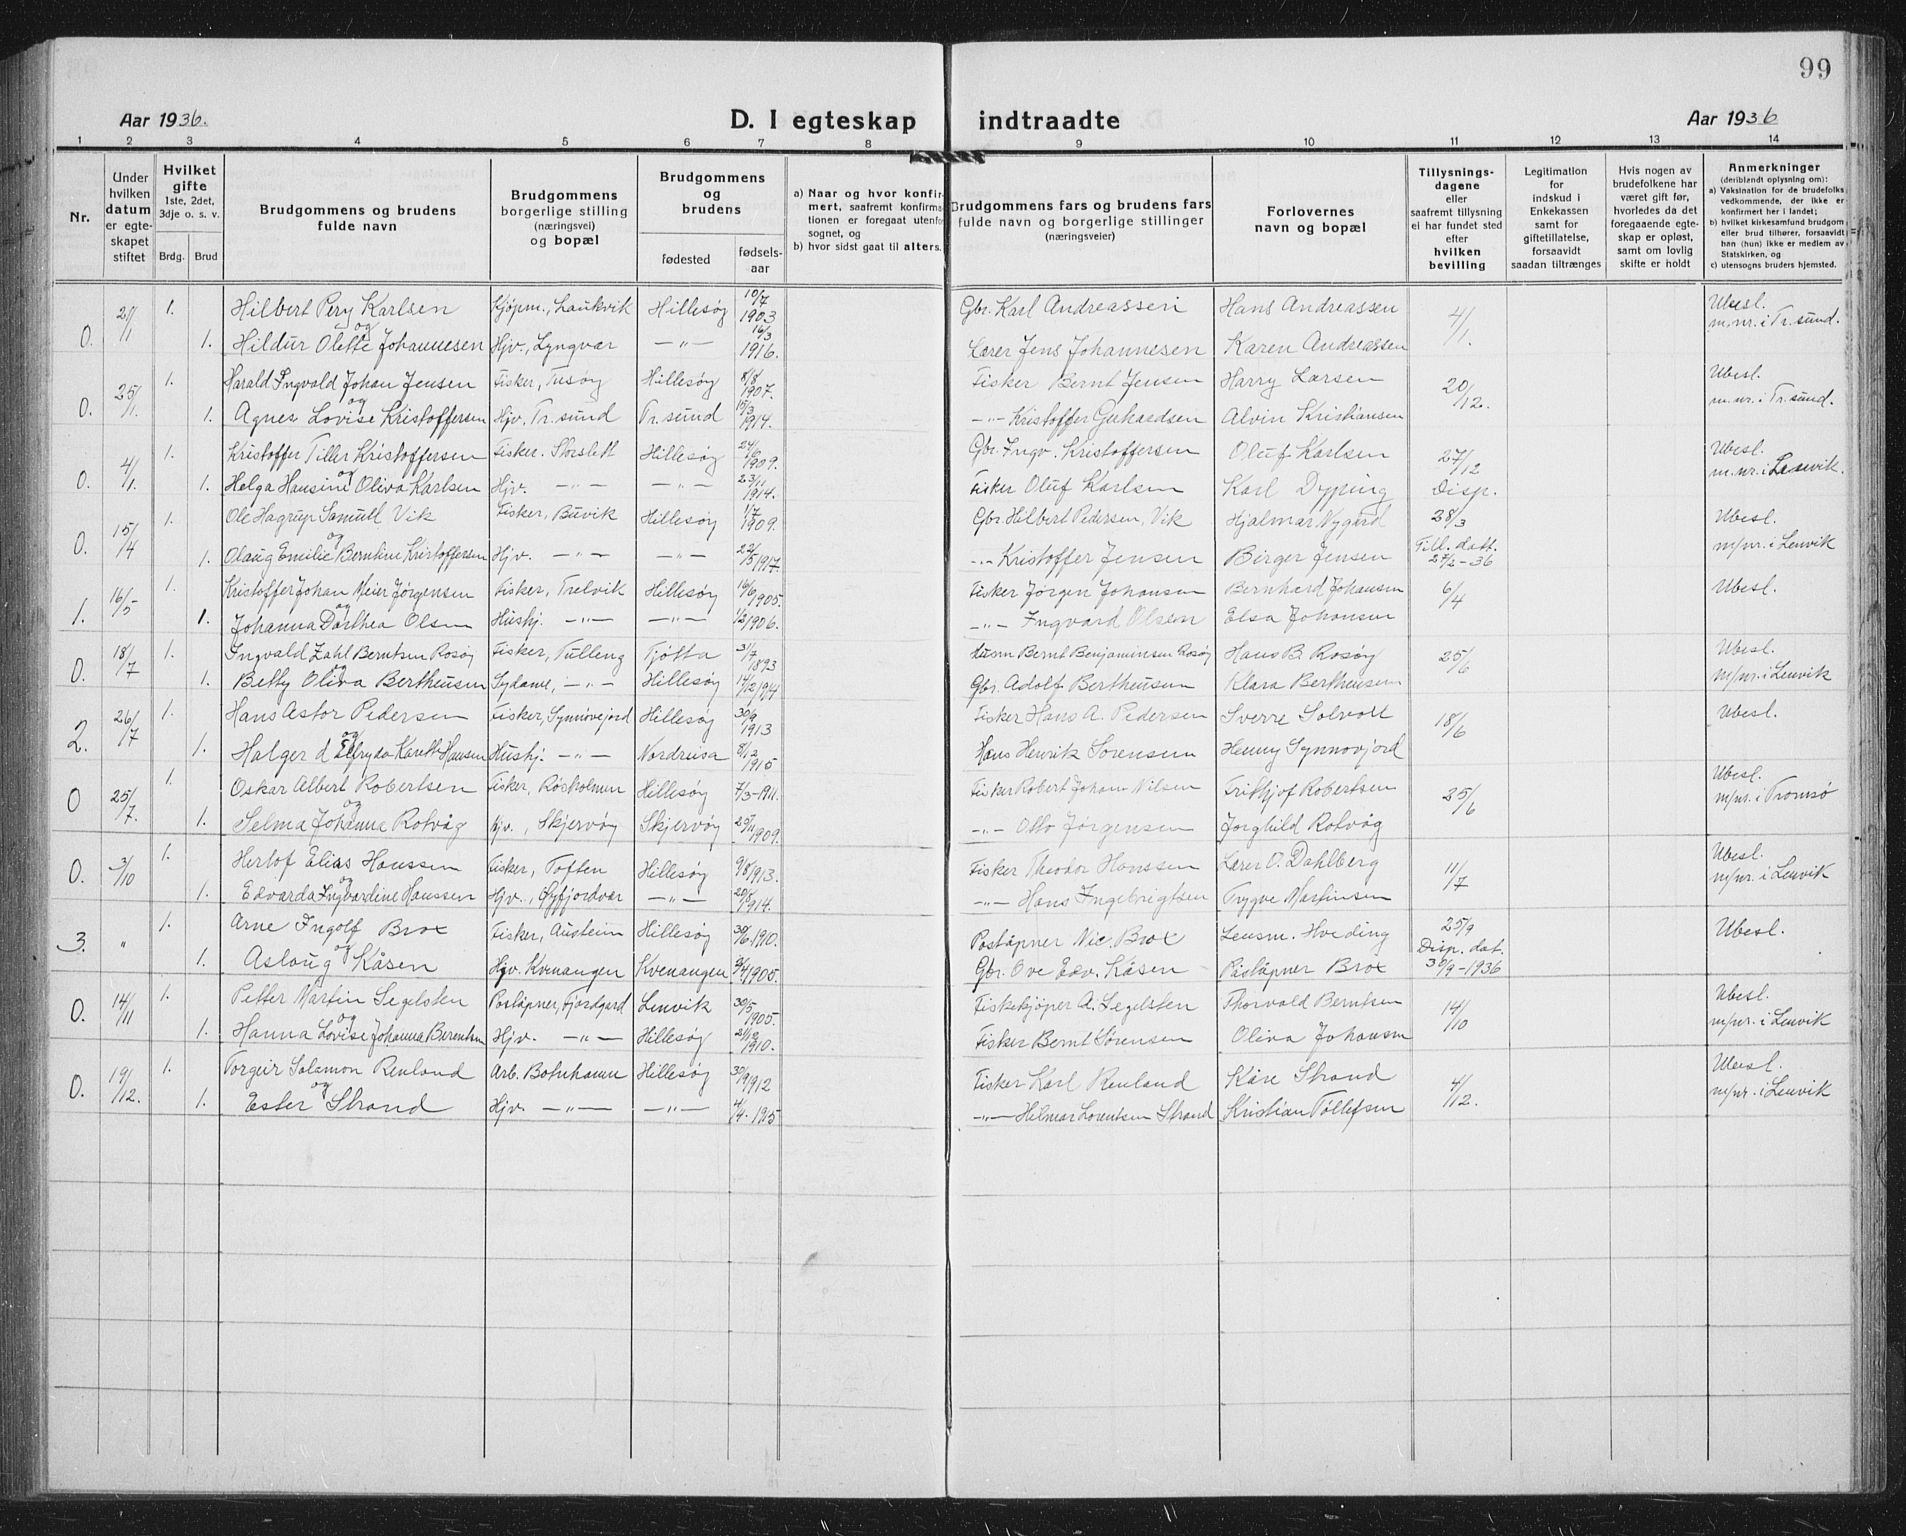 99
Aar 1936. D. I egteskap indtraadte Aar 1936
1 2 3 4 5 6 7 8 9 10 11 12 13 14
Nr.
Under hvilken datum er egteskapet stiftet
Hvilket gifte 1ste, 2det, 3dje o. s. v.
Brdg. Brud
Brudgommens og brudens fulde navn
Brudgommens borgerlige stilling (næringsvei) og bopæl
Brudgommens og brudens
fødested fødselsaar
a) Naar og hvor konfirmert, saafremt konfirmationen er foregaat utenfor sognet, og
b) hvor sidst gaat til alters.
Brudgommens fars og brudens fars fulde navn og borgerlige stillinger (næringsveier)
Forlovernes navn og bopæl
Tillysningsdagene eller saafremt tillysning ei har fundet sted efter hvilken bevilling
Legitimation for indskud i Enkekassen samt for giftetillatelse, forsaavidt saadan tiltrænges
Hvis nogen av brudefolkene har været gift før, hvorledes da det foregaaende egteskap er opløst, samt om lovlig skifte er holdt
Anmerkninger (deriblandt oplysning om):
a) Vaksination for de brudefolks vedkommende, der ikke er konfirmert her i landet;
b) hvilket kirkesamfund brudgom eller brud tilhører, forsaavidt han (hun) ikke er medlem av Statskirken, og
c) utensogns bruders hjemsted.
0. 1. Hilbert Pery Karlsen Kjøpm., Laukvik Hillesøy 10/7 1903 Gbr. Karl Andreassen Hans Andreassen 4/1. Ubesl. m.nr. i Tr.sund.
og
1. Hildur Olette Johannesen Hjv., Lyngvær —"— 16/3 1916. Lærer Jens Johannesen Karen Andreassen
0. 25/1. 1. Harald Ingvald Johan Jensen Fisker, Tusøy Hillesøy 8/8 1907. Fisker Bernt Jensen Harry Larsen 20/12. Ubesl. m.nr. i Tr.sund.
og
1. Agnes Lovise Kristoffersen Hjv. Tr.sund Tr.sund 15/3 1914. —"— Kristoffer Alvin Kristiansen
0. 4/1. 1. Kristoffer Tiller Kristoffersen Fisker. Storslett Hillesøy 24/6 1909. Gbr. Ingv. Kristoffersen Oluf Karlsen 27/12 Disp. Ubesl. m.nr. i Lenvik.
og
1. Helga Hansine Oliva Karlsen Hjv. —"— —"— 23/11 1914. Fisker Oluf Karlsen Karl Dypping
0. 15/4 1. Ole Hagrup Samuel Vik Fisker, Buvik Hillesøy 1/7 1909. Gbr. Hilbert Pedersen, Vik Hjalmar Nygård 28/3 Ubesl. m/nr. i Lenvik
og
1. Olaug Emilie Berntine Kristoffersen Hjv. —"— —"— 22/5 1917. —"— Kristoffer Jensen Birger Jensen Till. datt. 27/2-36
1. 16/5 1. Kristoffer Johan Meier Jørgensen Fisker, Trelvik Hillesøy 16/6 1905. Fisker Jørgen Johansen Bernhard Johansen 6/4 Ubesl.
og
1. Johanna Dorthea Olsen Hushj. —"— —"— 1/2 1906. —"— Ingvard Olsen Elsa Johansen
0. 18/7 1. Ingvald Zahl Berntsen Rosøy Fisker, Tulleng Tjøtta 31/7 1893 Husm Bernt Benjaminsen Rosøy Hans B. Rosøy 25/6 Ubesl. m/nr. i Lenvik
og
1. Betty Oliva Bertheusen Sydame, —"— Hillesøy 14/12 1914 Gbr. Adolf Bertheusen Klara Bertheusen
2. 26/7 1. Hans Astor Pedersen Fisker, Synnøvejord Hillesøy 30/9 1913 Fisker Hans A. Pedersen Sverre Solvoll 18/6 Ubesl.
og
1. Halgerd Elfryda Hansen Hushj. —"— 8/12 1915 Hans Henrik Sørensen Henny Synnøvjord
0 25/7. 1. Oskar Albert Robertsen Fisker, Rosholmen Hillesøy 7/3-1911. Fisker Robert Johan Nilsen Frithjof Robertsen 25/6 Ubesl. m/nr. i Tromsø
og
1. Selma Johanna Rotvåg Hjv., Skjervøy Skjervøy 29/11 1909. —"— Otto Jørgensen Jorghild Rotvåg
0. 3/10 1. Hertof Elias Hanssen Fisker, Toften Hillesøy 9/8 1913. Fisker Theodor Hanssen Lærer O. Dahlberg 11/7 Ubesl. m/nr. i Lenvik
og
1. Edvarda Ingvardine Hanssen Hjv., Øyfjordvær —"— 1914. —"— Hans Ingebrigtsen Trygve Martinsen
3. " 1. Arne Ingolf Brox Fisker, Austein Hillesøy 30/6-1910. Poståpner Nic. Brox Lensm. Hveding 25/9 Disp. dat. 30/9-1936 Ubesl.
og
1. Aslaug Kåsen Hjv. Kvenangen Kvenangen 1905. Gbr. Ove Edv. Kåsen Poståpner Brox
0. 14/11 1. Petter Martin Segelsten Poståpner, Fjordgard Lenvik 30/5 1905. Fiskekjøper A. Segelsten Thorvald Berntsen 14/10 Ubesl. m/nr. i Lenvik
og
1. Hanna Lovise Johanna Berentsen Hjv. —"— Hillesøy 21/12 1910. Fisker Bernt Sørensen Oliva Johansen
0. 19/12. 1. Torgeir Salamon Renland Arb. Botnhamn Hillesøy 30/9 1912 Fisker Karl Renland Kåre Strand 4/12. Ubesl. m/nr. i Lenvik
og
1. Ester Strand Hjv. —"— —"— 4/4-1915 —"— Hilmar Lorentsen Strand Kristian Tollefsen